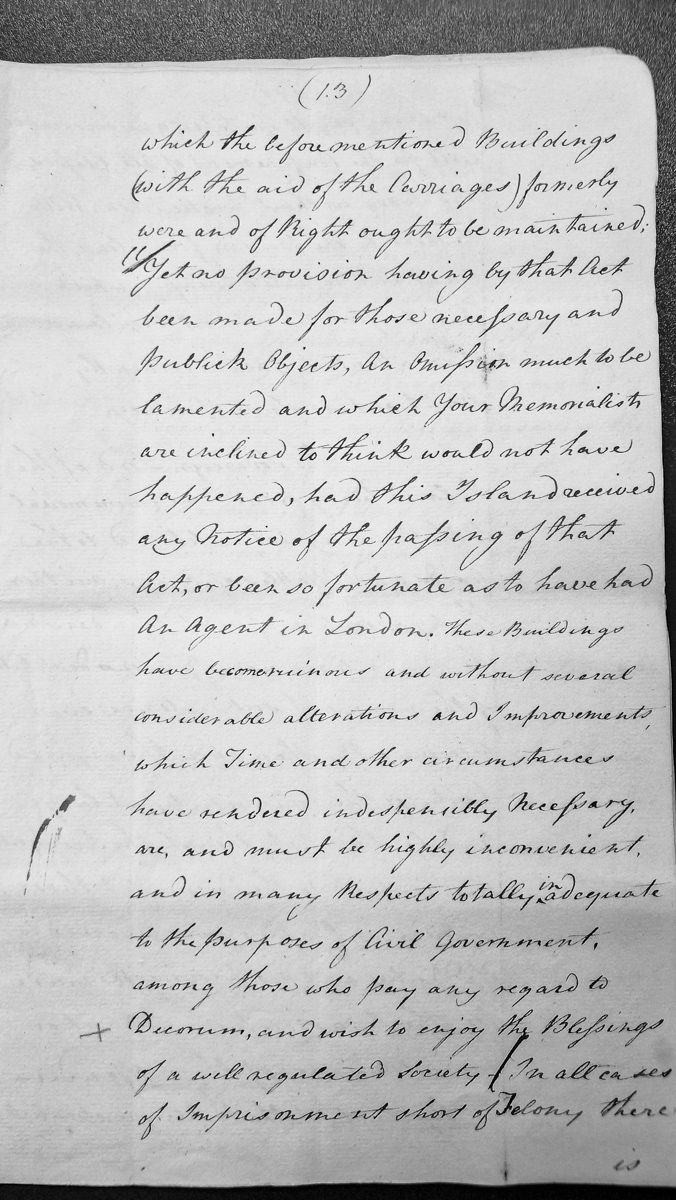 (13)
which the before mentioned Buildings
(with the aid of the Carriages) formerly
were and of Right ought to be maintained;
Yet no provision having by that Act
been made for those necessary and
publick Objects, An Omission much to be
lamented and which Your Memorialists
are inclined to think would not have
happened, had this Island received
any Notice of the passing of that
Act, or been so fortunate as to have had
An Agent in London. These Buildings
have become ruinous and without several
considerable alterations and Improvements,
which Time and other circumstances
have rendered indespensibly Necessary,
are, and must be highly inconvenient,
and in many Respects totally inadequate
to the purposes of Civil Government,
among those who pay any regard to
Decorum, and wish to enjoy the Blessings
of a well regulated Society - / In all cases
of Imprisonment short of Felony there
is